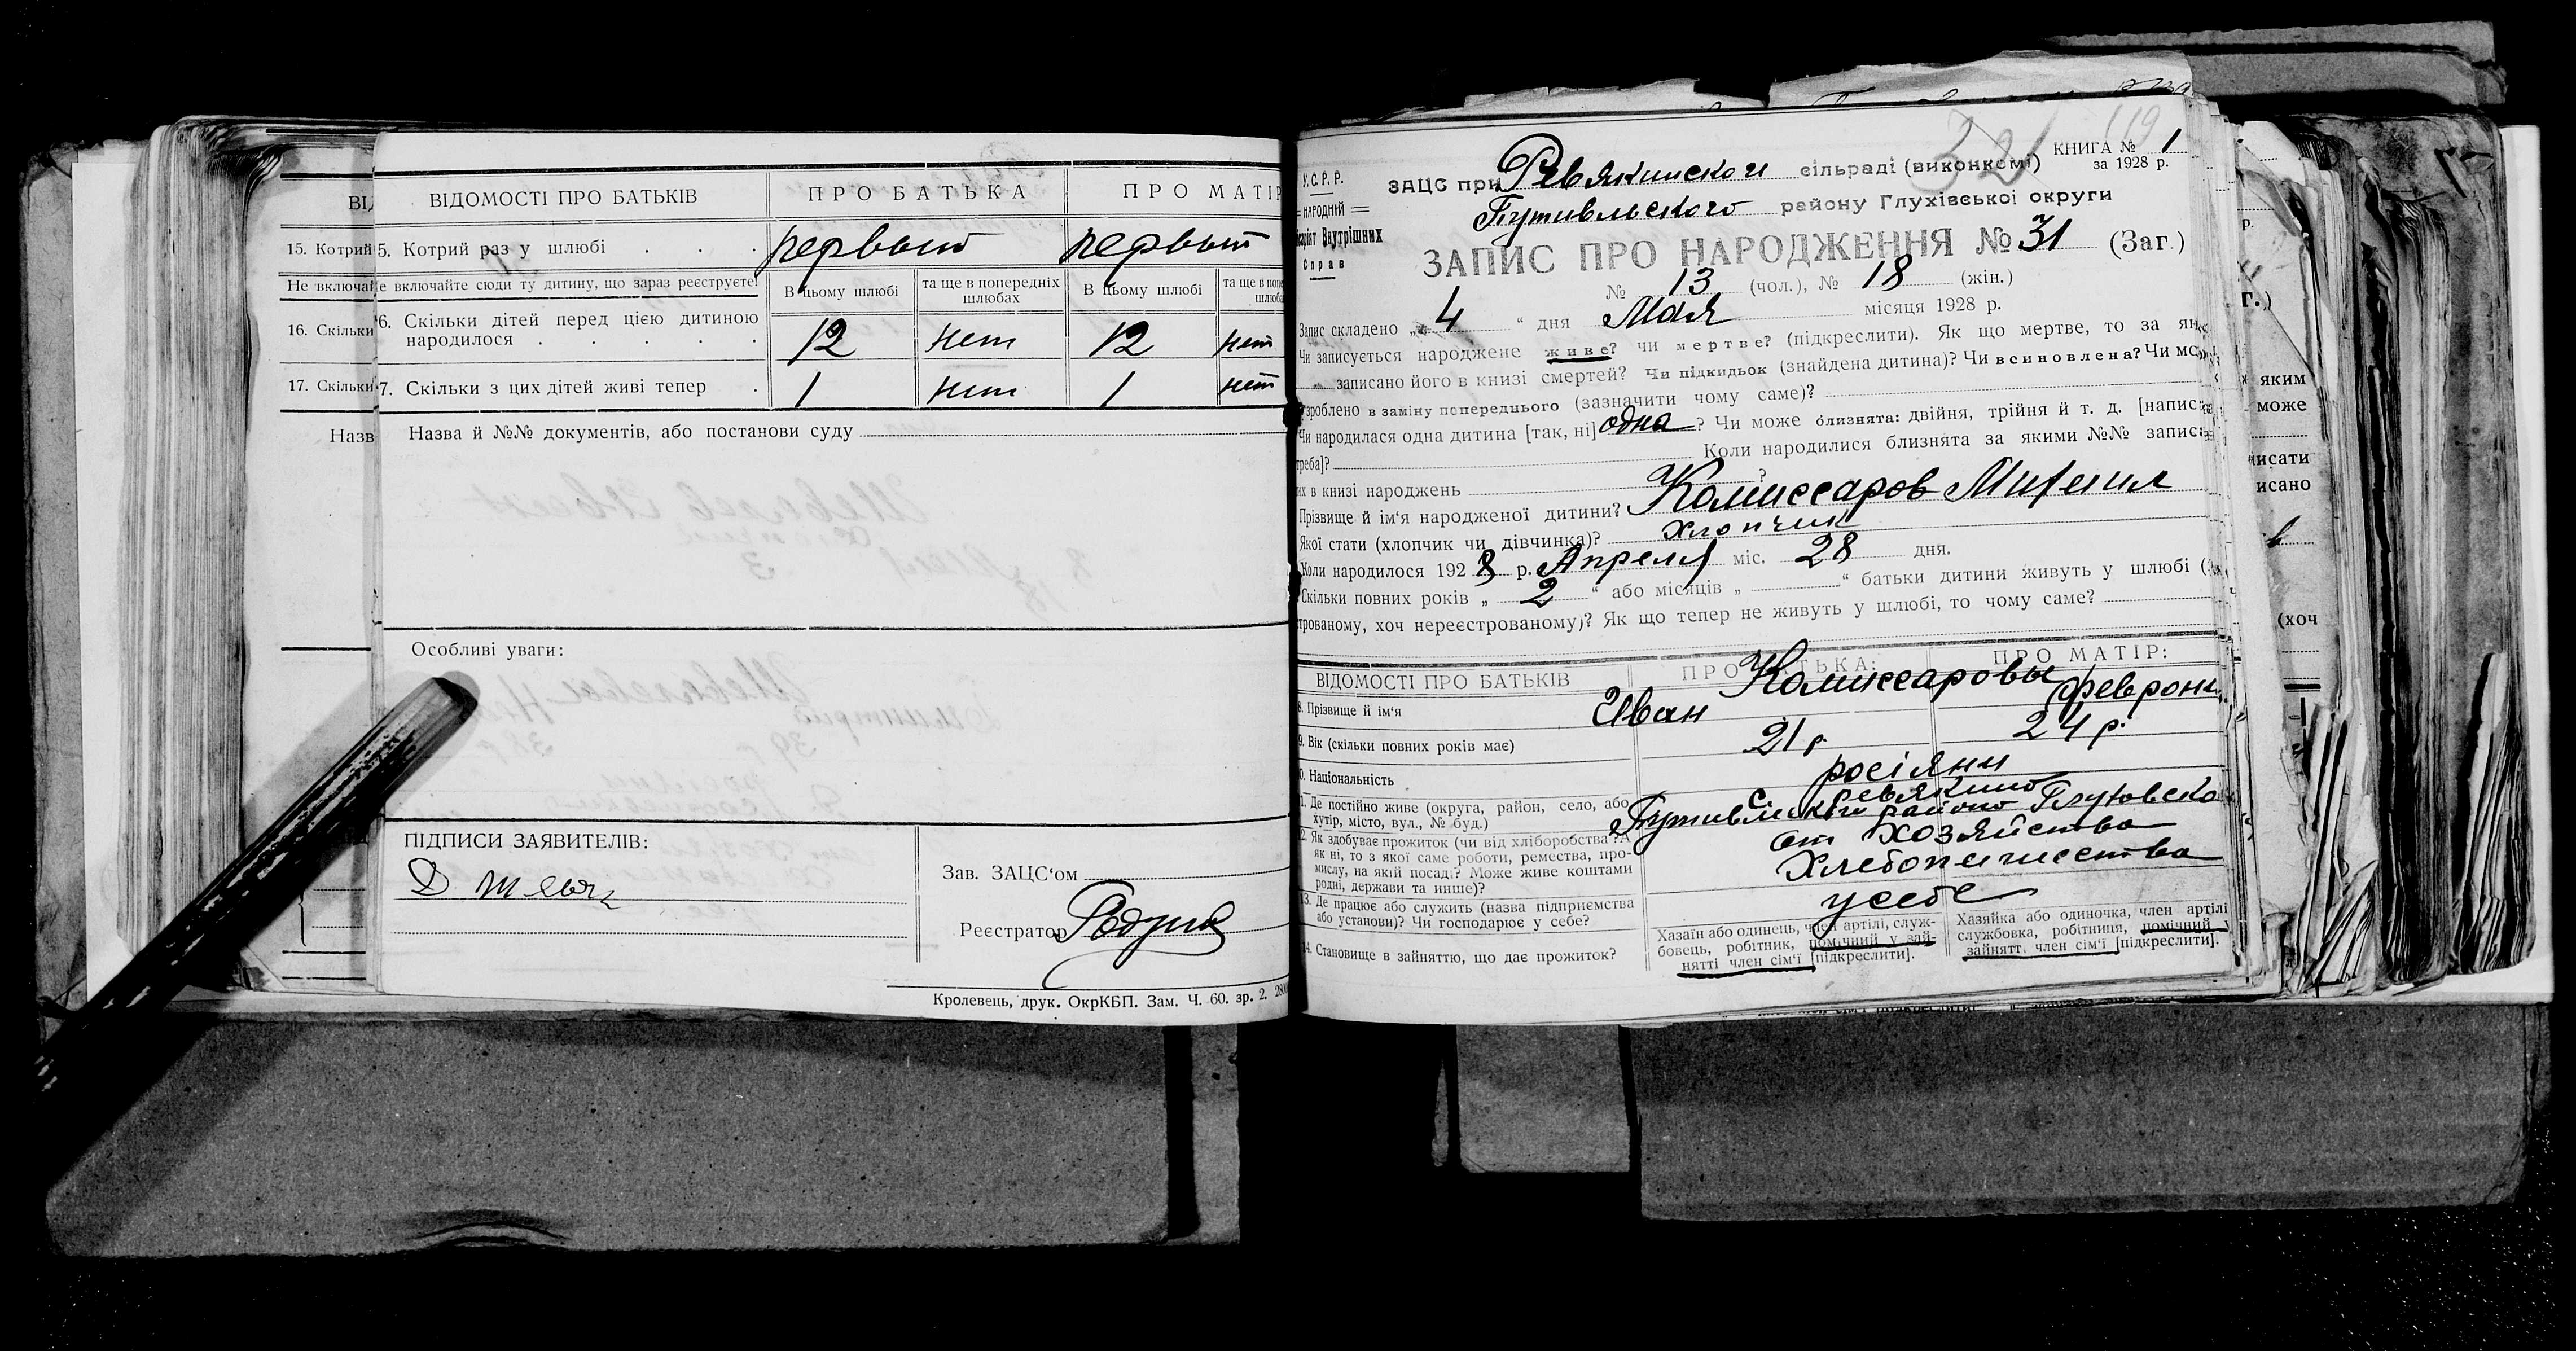 ВІДОМОСТІ ПРО БАТЬКІВ ПРО БАТЬКА ПРО МАТІР
15. Котрий 5. Котрий раз у шлюбі . . . первый первый
Не включай е включайте сюди ту дитину, що зараз реєструєте! В цьому шлюбі та ще в попередніх шлюбах В цьому шлюбі та ще в попе шлюба
16. Скільки 6. Скільки дітей перед цією дитиною
народилося . . . . . 12 нет 12 нет
17. Скільки 7. Скільки з цих дітей живі тепер . 1 нет 1 нет
Назв Назва й №№ документів, або постанови суду
Особливі уваги:
ПІДПИСИ ЗАЯВИТЕЛІВ:
Зав. ЗАЦС'ом
Реєстратор
Кролевець, друк. ОкрКБП. Зам. Ч. 60. зр. 2.
У.С.Р.Р.
НАРОДНІЙ
Внутрішних
Справ
КНИГА № 1
за 1928 р.
ЗАЦС при Ревякинской сільраді (виконкомі)
Путивльского району Глухівської округи
ЗАПИС ПРО НАРОДЖЕННЯ № 31 (Заг.)
№ 13 (чол.), № 18 (жін.)
Запис складено „ 4 “ дня Мая місяця 1928 р.
Чи записується народжене живе? чи мертве? (підкреслити). Як що мертве, то за як
записано його в книзі смертей? Чи підкидьок (знайдена дитина)? Чи всиновлена? Чи мо
зроблено в заміну попереднього (зазначити чому саме)?
Чи народилася одна дитина [так, ні] одна ? Чи може близнята: двійня, трійня й т. д. [напис
треба]? Коли народилися близнята за якими №№ запис
их в книзі народжень ?
Прізвище й ім'я народженої дитини? Комиссаров Михаил
Якої стати (хлопчик чи дівчинка)? Хлопчик
Коли народилося 1928 р. Апреля міс. 28 дня.
Скільки повних років „ 2 “ або місяців „ “ батьки дитини живуть у шлюбі (
трованому, хоч нереєстрованому)? Як що тепер не живуть у шлюбі, то чому саме?
ВІДОМОСТІ ПРО БАТЬКІВ ПРО БАТЬКА: ПРО МАТІР:
8. Прізвище й ім'я Иван Комиссаровы Феврони
9. Вік (скільки повних років має) 21 р 24 р.
0. Національність росіяни
1. Де постійно живе (округа, район, село, або
хутір, місто, вул., № буд.) с Ревякино
2. Як здобуває прожиток (чи від хліборобства? А
як ні, то з якої саме роботи, ремества, про-
мислу, на якій посаді? Може живе коштами
родні, держави та инше)?
от хозяйства
Хлебопашества
13. Де працює або служить (назва підприємства
або установи)? Чи господарює у себе? у себе
14. Становище в зайняттю, що дає прожиток?
Хазаїн або одинець, член артілі, служ-
бовець, робітник, помічний у зай-
нятті член сім'ї [підкреслити].
Хазяйка або одиночка, член артілі
службовка, робітниця, помічний
зайнятт. член сім'ї [підкреслити].
яким
може
исати
исано
(хоч